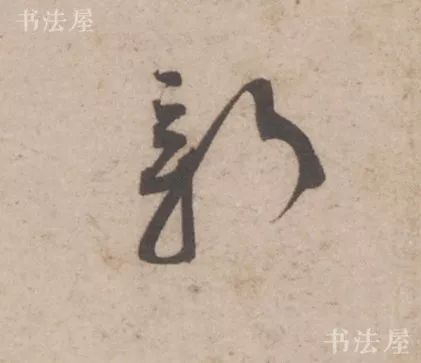 书法屋
郭
书法屋